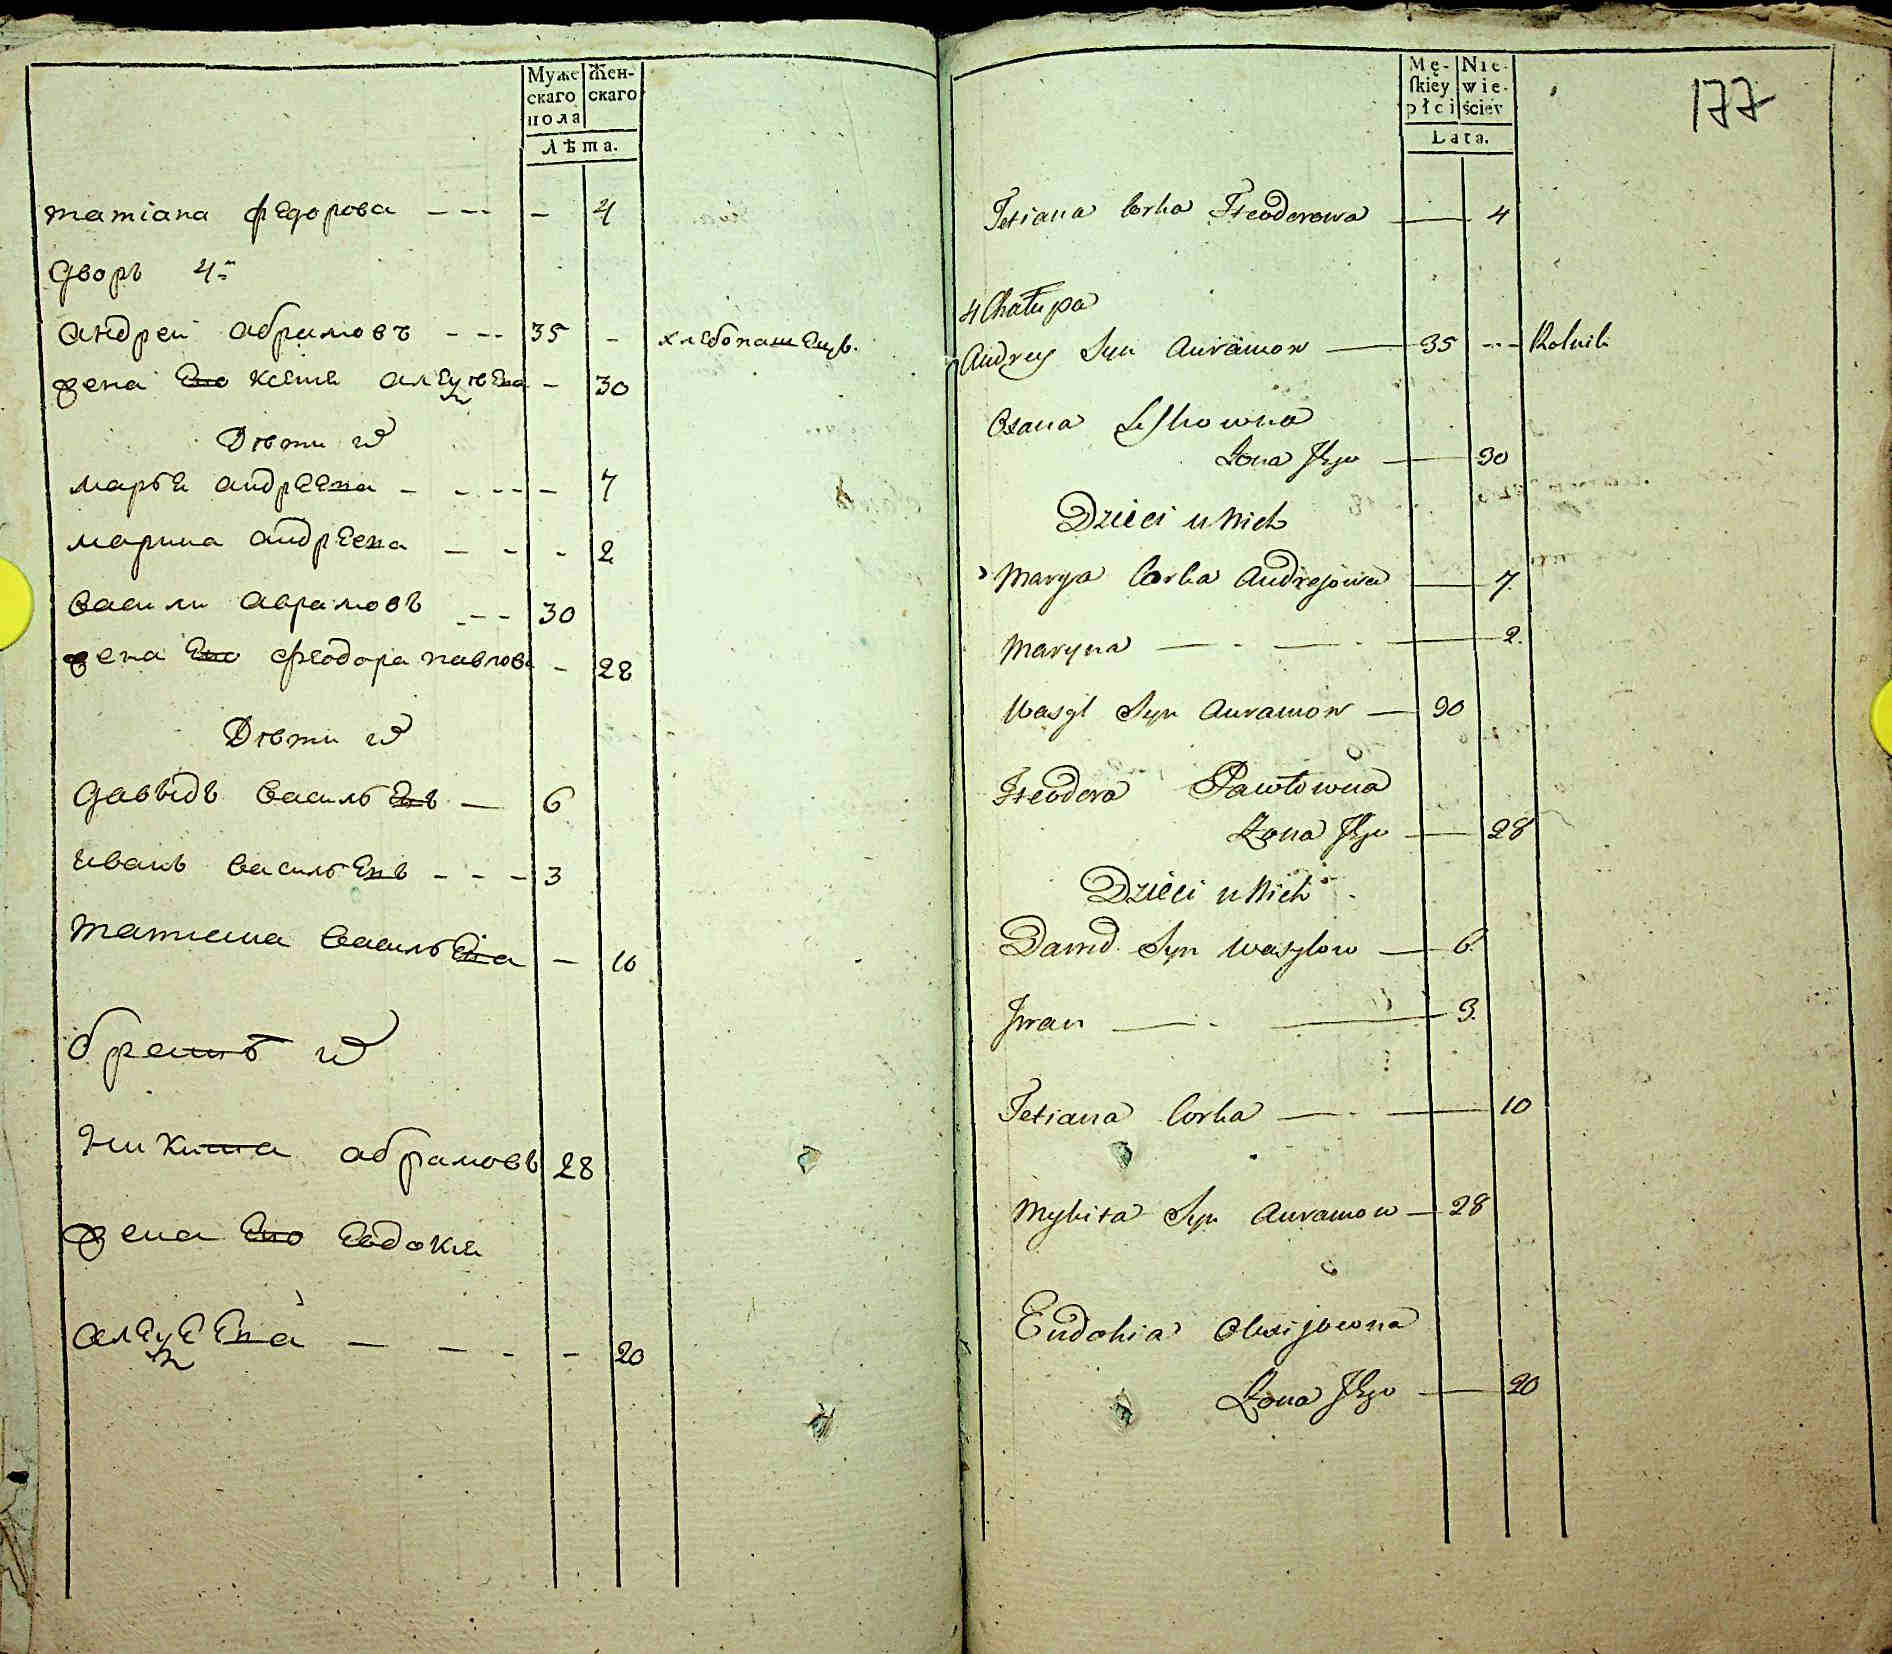 Муже
скаго
пола
Жен-
скаго
Лѣта.
татіана федорова - - - - 4
дворъ 4й
андреи абрамовъ - - - 35 - хлебопашецъ.
жена Его Ксеня алеѯѣева - 30
Дѣти ихъ
марья андреева - - - - - 7
марина андреева - - - 2
василии аврамовъ - - - 30
жена Его феодора павлова - 28
Дѣти ихъ
давыдъ васильевъ — 6
иванъ васильевъ - - - 3
татиана васильева - 10
братъ ихъ
никита абрамовъ 28
жена Его Евдокия
алеѯеева — - - - 20
Mę-
ſkiey
płci
Nie-
wie-
ściey
Lata.
177
Tetiana Corka Fteodorowa — 4
4 Chałupa
Andrey Syn Auramow — 35 --- Rolnik
Oxana
Żona Jego — 30
Dzieci u Nich
Marya Corka Andrejowa — 7.
Maryna — - — - — 2.
Wasyl Syn Auramow — 30
Fteodora Pawłowna
Żona Jego — 28
Dzieci u Nich
Dawid Syn Wasylow — 6.
Jwan — - — 3.
Tetiana Corka — - — 10
Mykita Syn Auramow — 28
Eudokia Olexijowna
Żona Jego — 20